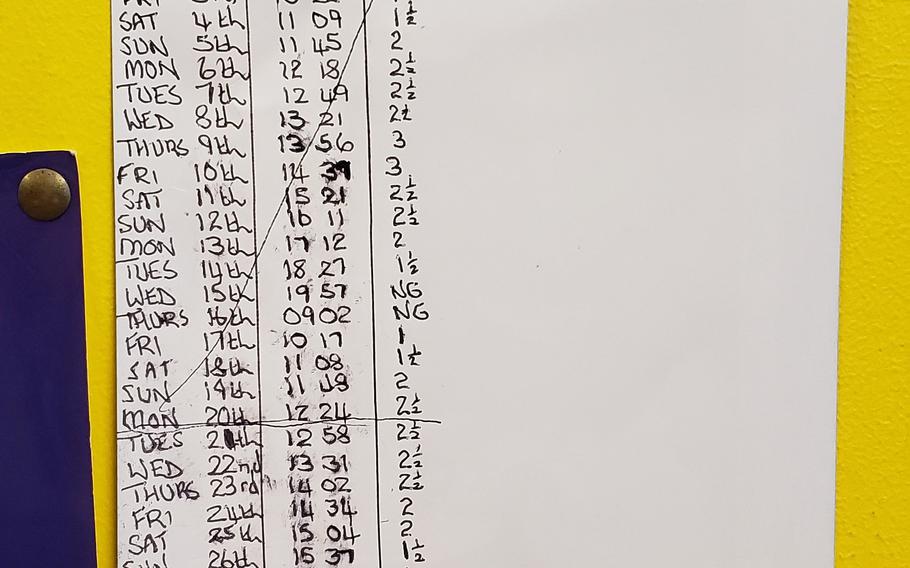 SAT 4th 11 09 1½
SUN 5th 11 45 2
MON 6th 12 18 2½
TUES 7th 12 49 2½
WED 8th 13 21 2½
THURS 9th 13 56 3
FRI 10th 14 39 3
SAT 11th 15 21 2½
SUN 12th 16 11 2½
MON 13th 17 12 2
TUES 14th 18 27 1½
WED 15th 19 57 NG
THURS 16th 09 02 NG
FRI 17th 10 17 1
SAT 18th 11 08 1½
SUN 19th 11 2
MON 20th 12 24 2½
TUES 21th 12 58 2½
WED 22nd 13 31 2½
THURS 23rd 14 02 2½
FRI 24th 14 34 2
SAT 25th 15 04 2
SUN 26th 15 37 1½